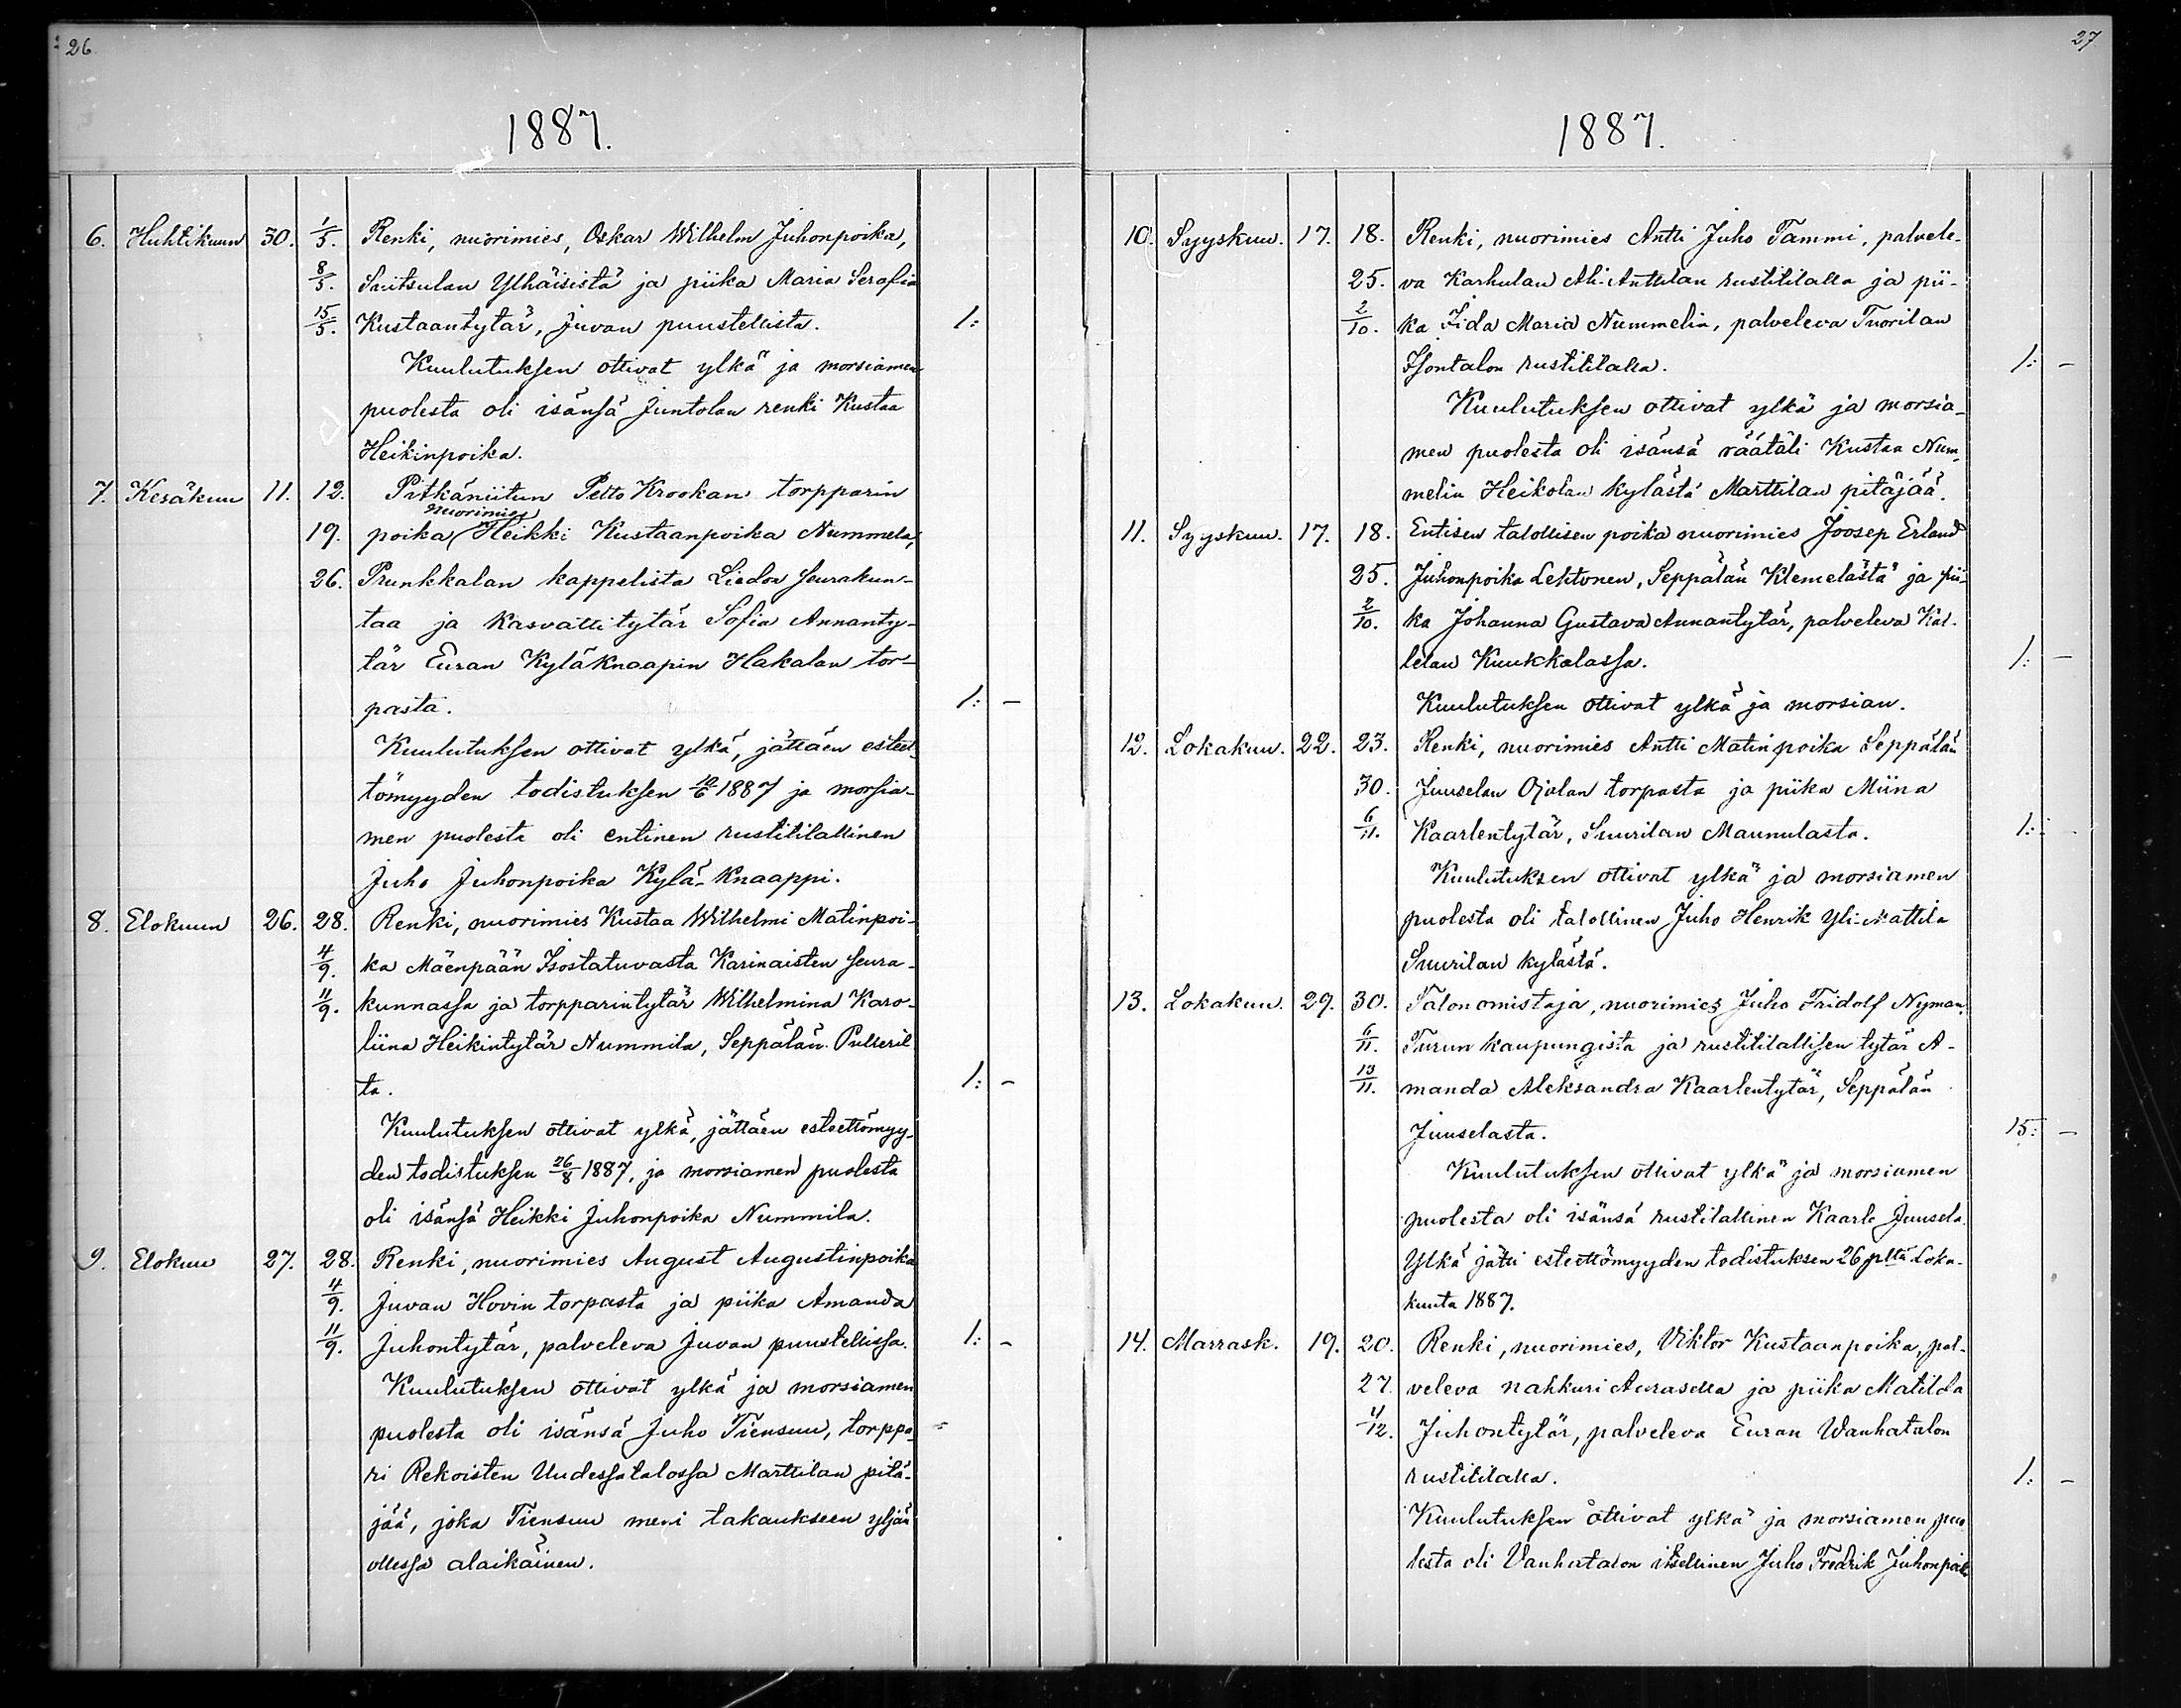 26
1887.
6. Huhtikuun 30. 1/5. Renki, nuorimies, Oskar Wilhelm Juhonpoika,
8/5. Suitsulan Ylhäisistä ja piika Maria Serafia
15/5. Kustaantytär, Juvan puustellista. 1:
Kuulutuksen ottivat ylkä ja morsiamen
puolesta oli isänsä Juntolan renki Kustaa
Heikinpoika.
7. Kesäkuu 11. 12. Pitkäniitun Pelto Krookan torpparin
nuorimies
19. poika Heikki Kustaanpoika Nummela,
26. Prunkkalan kappelista Liedon seurakun-
taa ja kasvattitytär Sofia Annanty-
tär Euran Kyläknaapin Hakalan tor-
pasta. 1: –
Kuulutuksen ottivat ylkä, jättäen esteet-
tömyyden todistuksen 10/6 1887 ja morsia-
men puolesta oli entinen rustitilallinen
Juho Juhonpoika Kylä-Knaappi.
8. Elokuun 26. 28. Renki, nuorimies Kustaa Wilhelmi Matinpoi-
4/9. ka Mäenpään Isostatuvasta Karinaisten seura-
11/9. kunnassa ja torpparintytär Wilhelmina Karo-
liina Heikintytär Nummila, Seppälän
ta. 1: –
Kuulutuksen ottivat ylkä, jättäen esteettömyy-
den todistuksen 26/8 1887, ja morsiamen puolesta
oli isänsä Heikki Juhonpoika Nummila.
9. Elokuu 27. 28. Renki, nuorimies August Augustinpoika
4/9. Juvan Hovin torpasta ja piika Amanda
11/9. Juhontytär, palveleva Juvan puustellissa. 1: –
Kuulutuksen ottivat ylkä ja morsiamen
puolesta oli isänsä Juho Tiensuu, torppa-
ri Rekoisten Uudessatalossa Marttilan pitä-
jää, joka Tiensuu meni takaukseen yljän
ollessa alaikäinen.
27
1887.
10. Syyskuu. 17. 18. Renki, nuorimies Antti Juho Tammi, palvele-
25. va Karhulan Ali-Anttilan rustitilalla ja pii-
2/10. ka Iida Maria Nummelin, palveleva Tuorilan
Isontalon rustitilalla. 1: –
Kuulutuksen ottivat ylkä ja morsia-
men puolesta oli isänsä räätäli Kustaa Num-
melin Heikolan kylästä Marttilan pitäjää.
11. Syyskuu. 17. 18. Entisen talollisen poika nuorimies Joosep Erland
25. Juhonpoika Lehtonen, Seppälän Klemelästä ja pii-
2/10. ka Johanna Gustava Annantytär, palveleva Kal-
lelan Kuukkalassa. 1: –
Kuulutuksen ottivat ylkä ja morsian.
12. Lokakuu. 22. 23. Renki, nuorimies Antti Matinpoika Seppälän
30. Juuselan Ojalan torpasta ja piika Miina
6/11. Kaarlentytär, Suurilan Maunulasta. 1: –
Kuulutuksen ottivat ylkä ja morsiamen
puolesta oli talollinen Juho Henrik Yli-Mattila
Suurilan kylästä.
13. Lokakuu. 29. 30. Talonomistaja, nuorimies Juho Fridolf Nyman,
6/11. Turun kaupungista ja rustitilallisen tytär A-
13/11. manda Aleksandra Kaarlentytär, Seppälän
Juuselasta. 15: –
Kuulutuksen ottivat ylkä ja morsiamen
puolesta oli isänsä rustitilallinen Kaarle Juusela.
Ylkä jätti esteettömyyden todistuksen 26 pltä Loka-
kuuta 1887.
14. Marrask. 19. 20. Renki, nuorimies, Viktor Kustaanpoika, pal-
27. veleva nahkuri Aurasella ja piika Matilda
4/12. Juhontytär, palveleva Euran Wanhatalon
rustitilalla. 1: –
Kuulutuksen ottivat ylkä ja morsiamen puo
lesta oli Vanhatalon itsellinen Juho Fredrik Juhonpoika